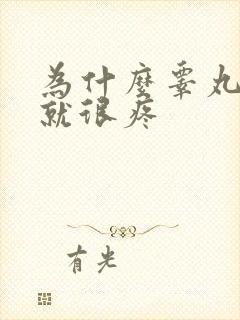 为什麼睾丸
就很疼
有光